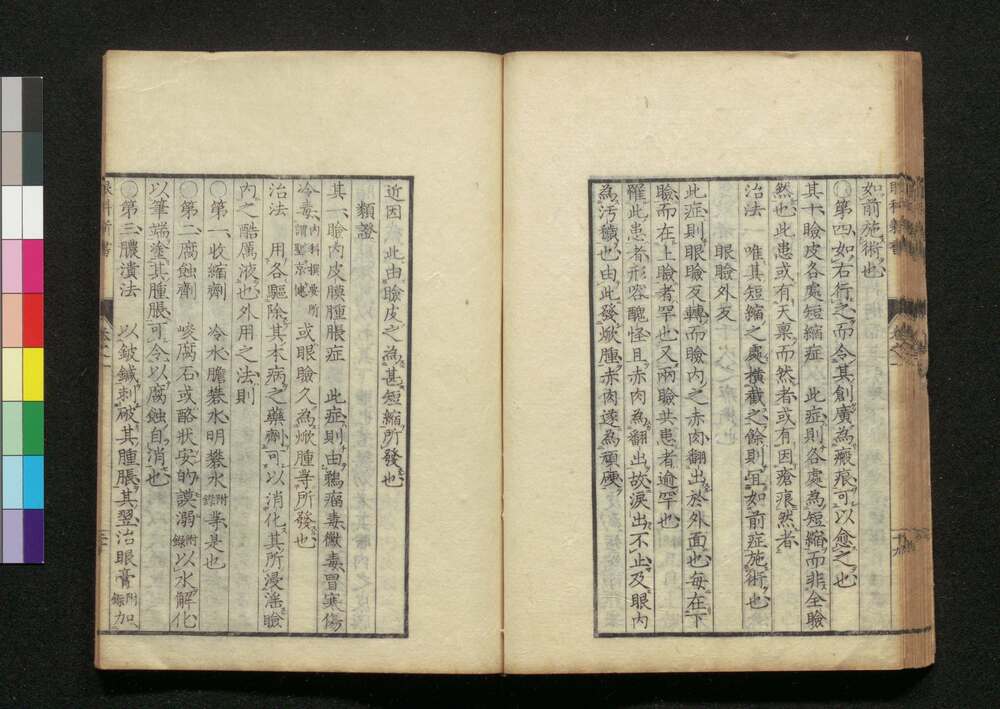 如前施術也
○第四如右行之而令其創廣為瘢痕可以愈之也
其十瞼皮各處短縮症　此症則各處為短縮而非全瞼
然也此患或有天稟而然者或有因瘡痕然者
治法　唯其短縮之處横截之餘則宜如前症施術也
眼瞼外反
此症則眼瞼反轉而瞼内之赤肉翻出於外面也毎在下
瞼而在上瞼者罕也又兩瞼共患者逾罕也
罹此患者形容醜怪且赤肉為翻出故淚出不止及眼内
為汚穢也由此發焮腫赤肉遂為頑硬
近因　此由瞼皮之為甚短縮所發也
類證
其一瞼内皮膜腫脹症　此症則由鵞瘤毒黴毒冒寒傷
冷毒内科撰要所謂聖京偲或眼瞼久為焮腫等所發也
治法　用各驅除其本病之藥劑可以消化其所浸滛瞼
内之酷厲液也外用之法則
○第一收縮劑　冷水膽礬水明礬水附錄等是也
○第二腐蝕劑　峻腐石或酪狀安的謨溺附錄以水解化
以筆端塗其腫脹可令以腐蝕自消也
○第三膿潰法　以鈹鍼刺破其腫脹其翌治眼膏附錄加
眼科新書
卷之二